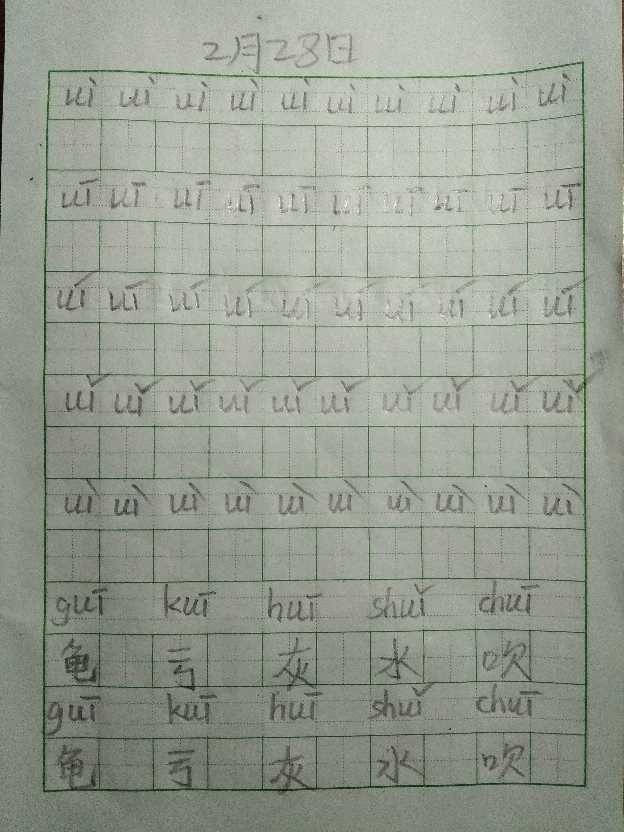 2月28日
ui ui ui ui ui ui ui ui ui ui
uī uī uī uī uī uī uī uī uī uī
uí uí uí uí uí uí uí uí uí uí
uǐ uǐ uǐ uǐ uǐ uǐ uǐ uǐ uǐ uǐ
uì uì uì uì uì uì uì uì uì uì
guī kuī huī shuǐ chuī
龟 亏 灰 水 吹
guī kuī huī shuǐ chuī
龟 亏 灰 水 吹